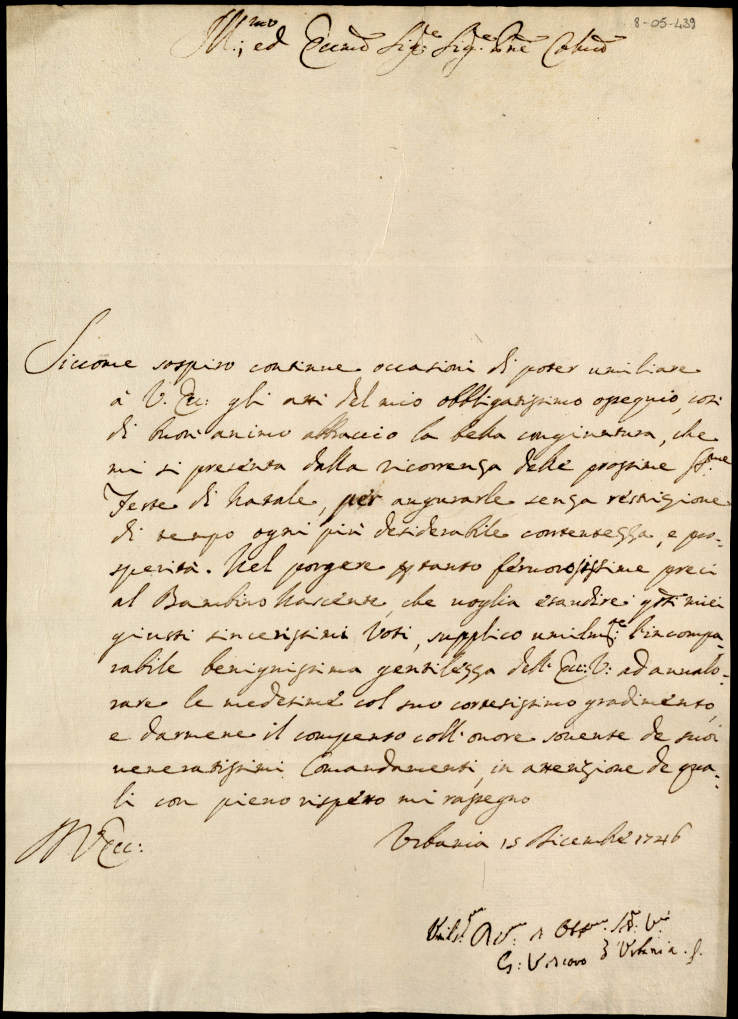 8-05-439
Ill.mo ed Ecc.mo Sig.e Sig.e P.ne Col.mo
Siccome sospiro continue occasioni di poter umiliare
à V. Ecc: gli atti del mio obbligatissimo ossequio, così
di buon animo abbraccio la bella congiuntura, che
mi si presenta dalla ricorrenza delle prossime SS.me
Feste di Natale, per augurarle senza restrizione
di tempo ogni più desiderabile contentezza, e pro-
sperità. Nel porgere p tanto fervorosissime preci
al Bambino Nascente, che voglia esaudire q.ti miei
giusti sincerissimi Voti, supplico umilm.te l'incompa-
rabile benignissima gentilezza dell'Ecc: V: ad avvalo-
rare le medesime col suo cortesissimo gradimento,
e darmene il compenso coll'onore sovente de suoi
veneratissimi Comandamenti, in attenzione de qua-
li con pieno rispetto mi rassegno
Di V. Ecc:
Urbania 15 Dicembre 1746
Umil.mo Dv.mo Obb.mo
G: Vescovo d'Urbania